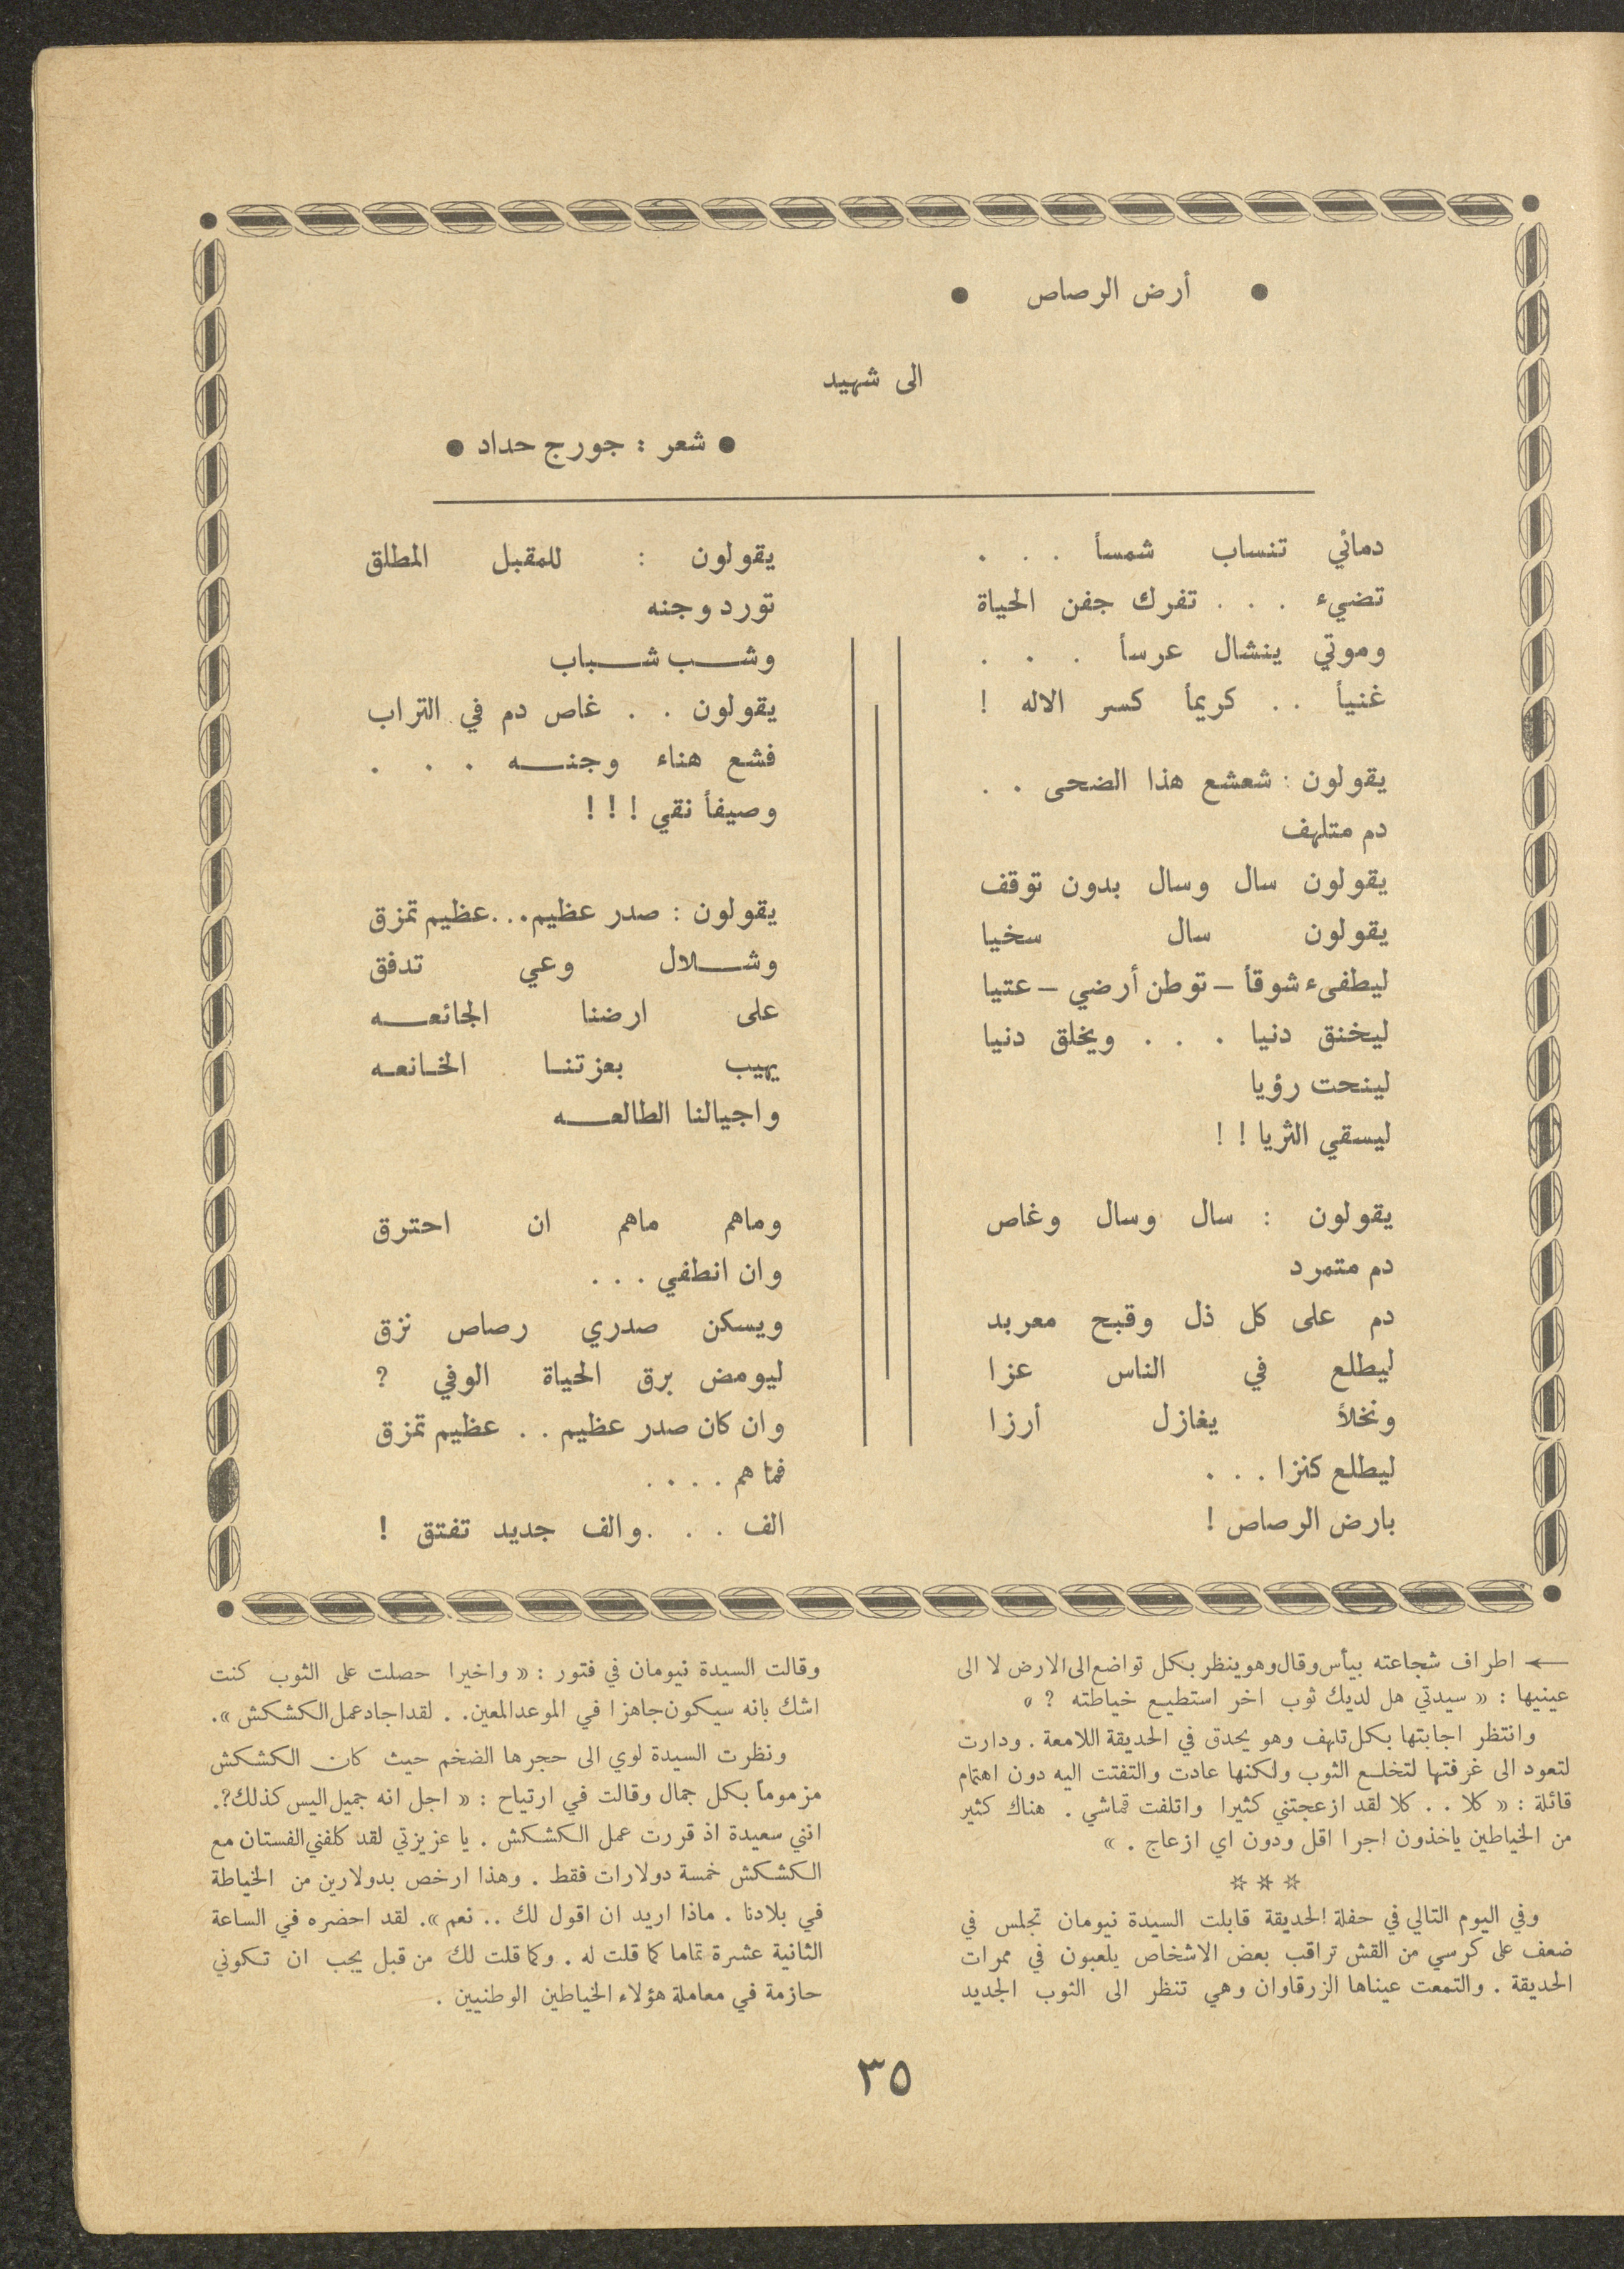 ● أرض الرصاص ●
الى شهيد
● شعر : جورج حداد ●
دمائي تنساب شمسأ . . .
تضيء . . . تفرك جفن الحياة
وموتي ينشال عرسأ . . .
غنيأ . . كريمأ كسر الاله !
يقولون : شعشع هذا الضحى . .
دم متلهف
يقولون سال وسال بدون توقف
يقولون سال سخيا
ليطفىء شوقأ – توطن أرضي – عتيا
ليخنق دنيا . . . ويخلق دنيا
لينحت رؤيا
ليسقي الثريا ! !
يقولون : سال وسال وغاص
دم متمرد
دم على كل ذل وقبح معربد
ليطلع في الناس عزا
ونخلأ يغازل أرزا
ليطلع كنزا . . .
بارض الرصاص !
يقولون : للمقبل المطلق
تورد وجنه
وشب شباب
يقولون . . غاص دم في التراب
فشع هناء وجنه . . .
وصيفأ نقي ! ! !
يقولون : صدر عظيم...عظيم تمزق
وشلال وعي تدفق
على ارضنا الجائعه
يهيب بعزتنا الخانعه
واجيالنا الطالعه
وماهم ماهم ان احترق
وان انطفي . . .
ويسكن صدري رصاص نزق
ليومض برق الحياة الوفي ?
وان كان صدر عظيم . . عظيم تمزق
فما هم . . . .
الف . . . والف جديد تفتق !
← اطراف شجاعته بيأس وقال وهو ينظر بكل تواضع الى الارض لا الى
عينيها : « سيدتي هل لديك ثوب اخر استطيع خياطته ? »
وانتظر اجابتها بكل تلهف وهو يحدق في الحديقة اللامعة . ودارت
لتعود الى غرفتها لتخلع الثوب ولكنها عادت والتفتت اليه دون اهتمام
قائلة : « كلا . . كلا لقد ازعجتني كثيرا واتلفت قماشي . هناك كثير
من الخياطين ياخذون اجرا اقل ودون اي ازعاج . »
* * *
وفي اليوم التالي في حفلة الحديقة قابلت السيدة نيومان تجلس في
ضعف على كرسي من القش تراقب بعض الاشخاص يلعبون في ممرات
الحديقة . والتمعت عيناها الزرقاوان وهي تنظر الى الثوب الجديد
وقالت السيدة نيومان في فتور : « واخيرا حصلت على الثوب كنت
اشك بانه سيكون جاهزا في الموعد المعين. . لقد اجاد عمل الكشكش ».
ونظرت السيدة لوي الى حجرها الضخم حيث كان الكشكش
مزمومأ بكل جمال وقالت في ارتياح : « اجل انه جميل اليس كذلك?.
انني سعيدة اذ قررت عمل الكشكش . يا عزيزتي لقد كلفني الفستان مع
الكشكش خمسة دولارات فقط . وهذا ارخص بدولارين من الخياطة
في بلادنا . ماذا اريد ان اقول لك .. نعم ». لقد احضره في الساعة
الثانية عشرة تماما كما قلت له . وكما قلت لك من قبل يجب ان تكوني
حازمة في معاملة هؤلاء الخياطين الوطنيين .
٣٥